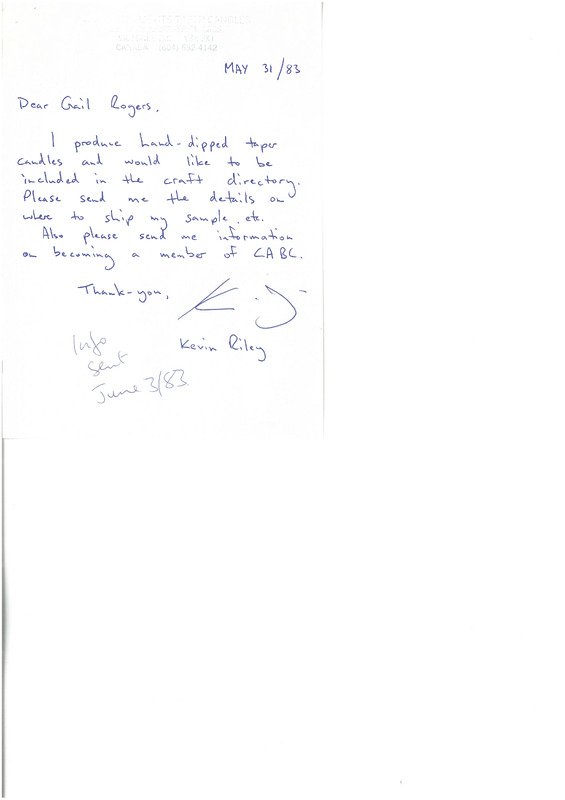 MAY 31/83
Dear Gail Rogers,
I produce hand-dipped taper
candles and would like to be
included in the craft directory.
Please send me the details on
where to ship my sample, etc.
Also please send me information
on becoming a member of CABC.
Thank-you,
Kevin Riley
Info
sent
June 3/83